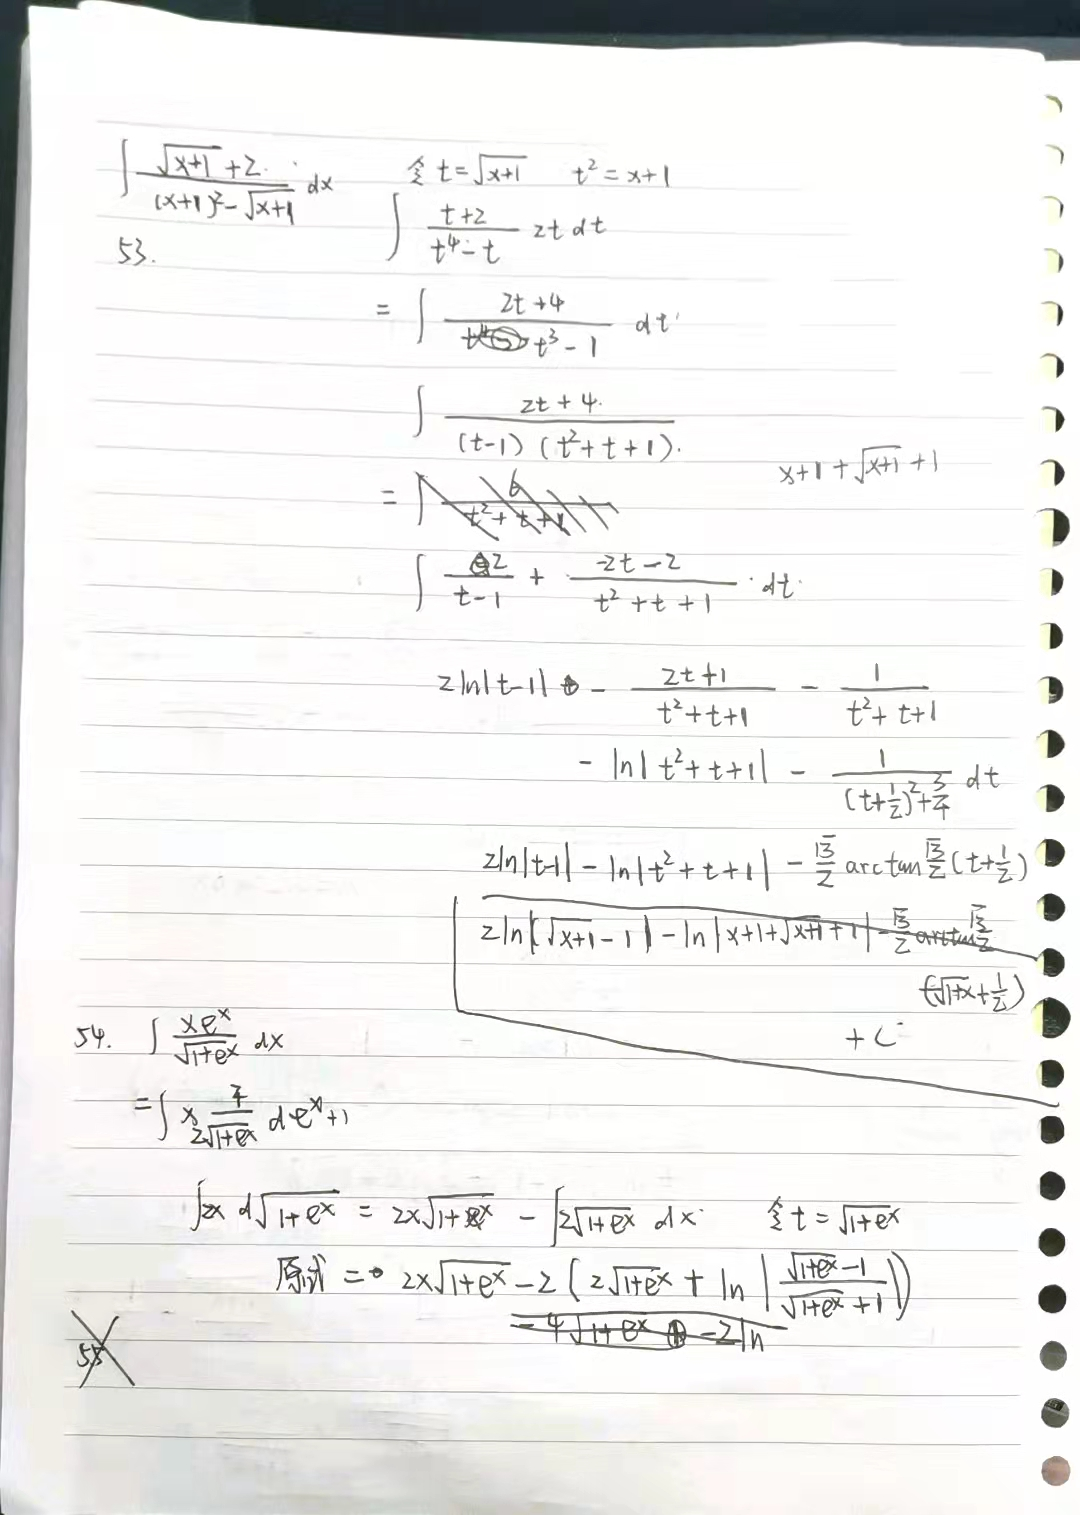 ∫ (√(x+1) + 2) / ((x+1)² - √(x+1)) dx 令 t = √(x+1) t² = x+1
53. ∫ (t+2)/(t⁴-t) 2t dt
= ∫ (2t+4)/(t³-1) dt
∫ (2t+4)/((t-1)(t²+t+1))
x+1+√(x+1)+1
= ∫ 6/(t²+t+1)
∫ 2/(t-1) + (-2t-2)/(t²+t+1) · dt
2ln|t-1| - (2t+1)/(t²+t+1) - 1/(t²+t+1)
- ln|t²+t+1| - 1/((t+1/2)²+3/4) dt
2ln|t-1| - ln|t²+t+1| - √3/2 arctan √3/2 (t+1/2)
2ln|√(x+1)-1| - ln|x+1+√(x+1)+1| - √3/2 arctan √3/2
(√(1+x)+1/2)
+ C
54. ∫ xeˣ/√(1+eˣ) dx
= ∫ x /(2√(1+eˣ)) d eˣ+1
∫2x d√(1+eˣ) = 2x√(1+eˣ) - ∫2√(1+eˣ) dx 令 t = √(1+eˣ)
原式 = 2x√(1+eˣ) - 2(2√(1+eˣ) + ln|(√(1+eˣ)-1)/(√(1+eˣ)+1)|)
= 4√(1+eˣ) -2ln
55